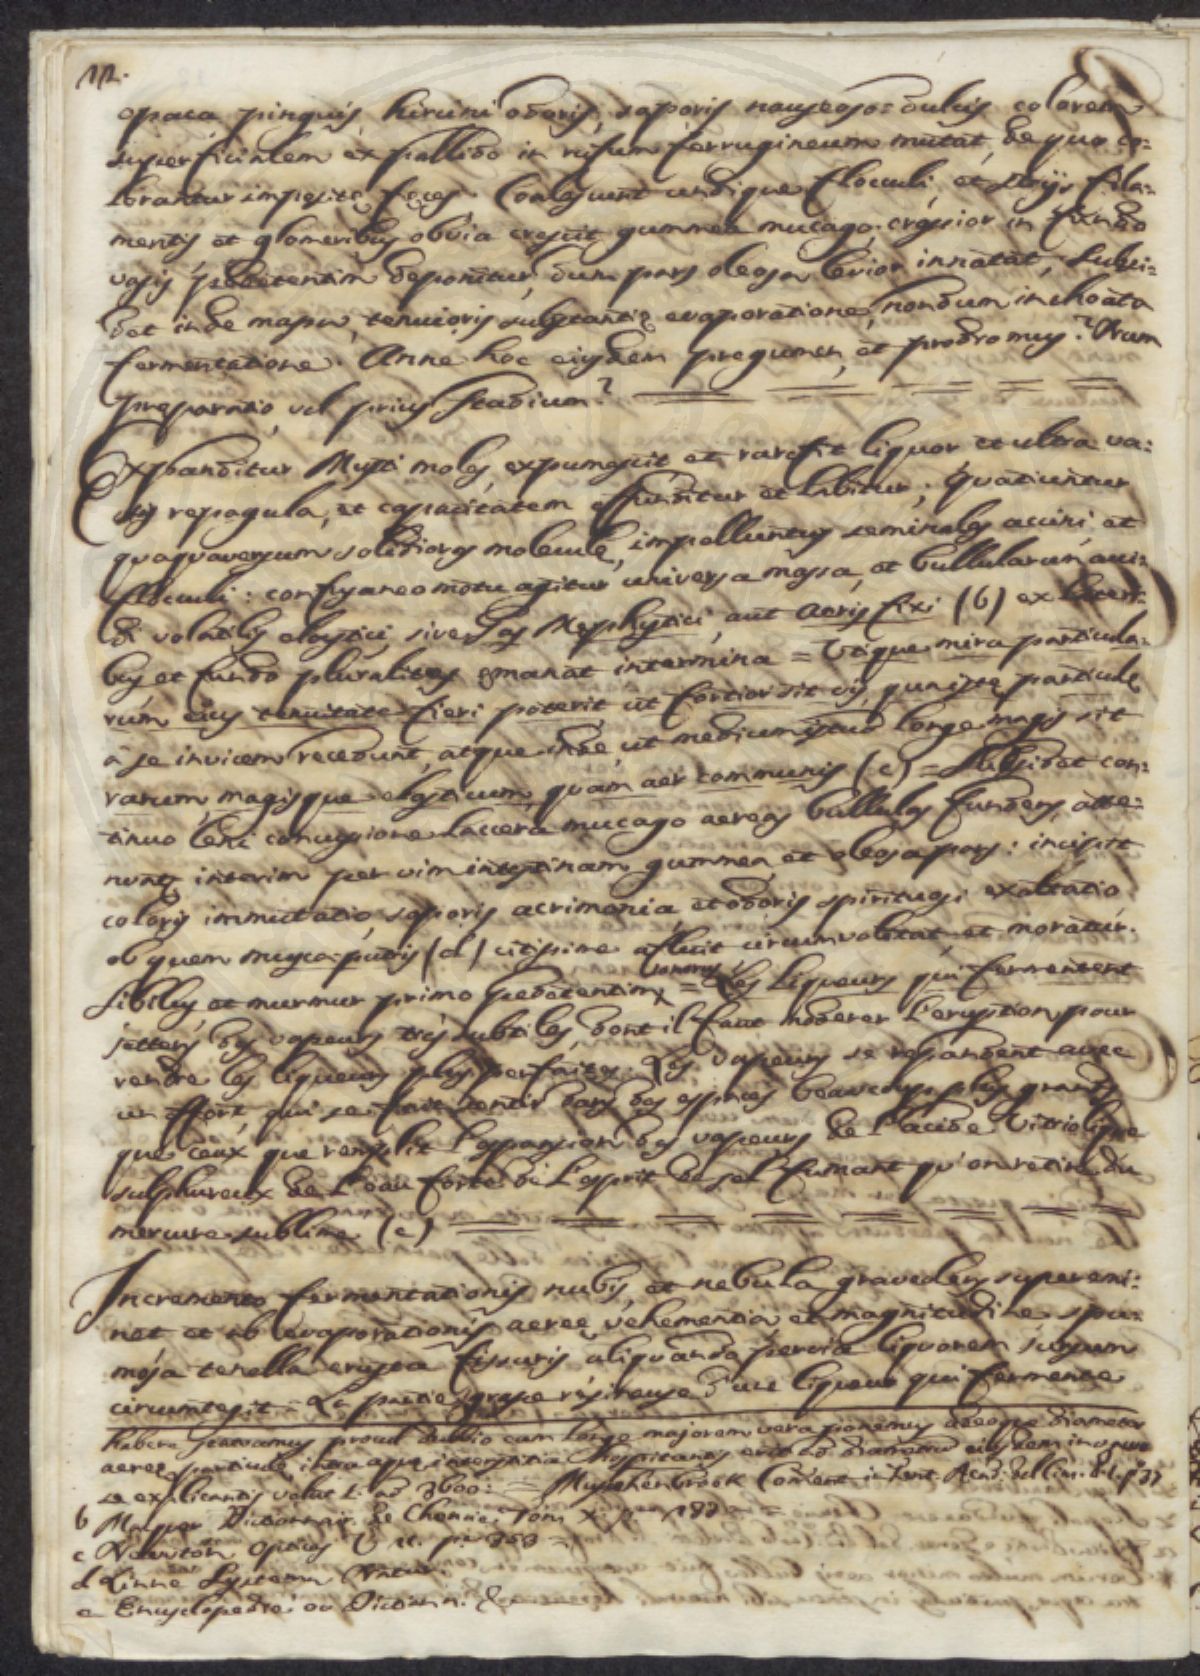 12.
opaca pinguis, hircini odoris, saporis nauseoso=dulcis colorem
superficialem ex pallido in rufum ferrugineum mutat, de quo co=
lorantur impositę fęces. Coalescunt undique flocculi et stryis fila=
mentis et glomeribus obvia crescit gummea mucago. crassior in fundo
vasis pedetentim deponitur, dum pars oleosa levior innatat, subsi=
det inde massa, tenuioris substantię evaporatione, nondum inchoata
fermentatione. Anne hoc eiusdem pręgumen, et prodromus? Utrum
pręparatio, vel prius stadium?
Expanditur Musti moles, expumescit et rarefit liquor et ultra va=
sis repagula, et capacitatem effunditur et labitur; quatiuntur
quaquaversum solidiores moleculę, impelluntur seminales acini, et
flocculi: confusaneo motu agitur universa massa, et bullularum
di volatilis elastici, sive Mephystici, aut Aeris fixi (b) ex
bus et fundo pluralitas emanat intermina = Utique mira particula=
rum eius tenuitate fieri poterit, ut fortior sit vis, qua istę particulę
a se invicem recedunt, atque inde ut medium istud longe magis sit
rarum, magisque elasticum, quam aer communis (c) = Subsidet con=
tinuo leni concussione lacera mucago aereas bullulas fundens, atte=
nuntę interim per vim intestinam gummea, et oleosa pars: incipit
coloris immutatio, saporis acrimonia et odoris spirituosi exaltatio
ob quem musca putris (d) citissime afluit circumvolitat, et moratur.
Sibillus et murmur primo pedetentim = Les Liqueurs qui fermentent
jettens des vapeurs tres subtiles, dont il faut moderer l'eruption pour
rendre les liqueurs plus parfaites. Les vapeurs se repandent avec
un effort, qui se fait sentir dans des espaces beaucoup plus grands
que ceux que remplit l'expansion des vapeurs de l'acide Vitriolique
sulphureux de l'eau forte de l'esprit de sel fumant qu'on retire du
mercure sublimé (e)
Incremento fermentationis nubis, et nebula graveolens superemi=
net et ob evaporationis aereę vehementia et magnitudine spu=
mosa tenella crusta fissuris aliquando pervia liquorem sursum
circumtegit = La partie grasse resineuse d'une liqueur qui fermente
habere statuamus proud dubio eam longe majorem vera ponemus adeoque diameter
aereę particulę intra aquę interstitia hospitantis erit ad diametrum eiusdem in
se explicantis velut 1. ad 3600: = Musshenbrook Coment. Acad.
b Macquer Dictionair. de Chemie Tom
c Newton Optices
d Linne Systema Natur.
e Encyclopedie ou Diction. &